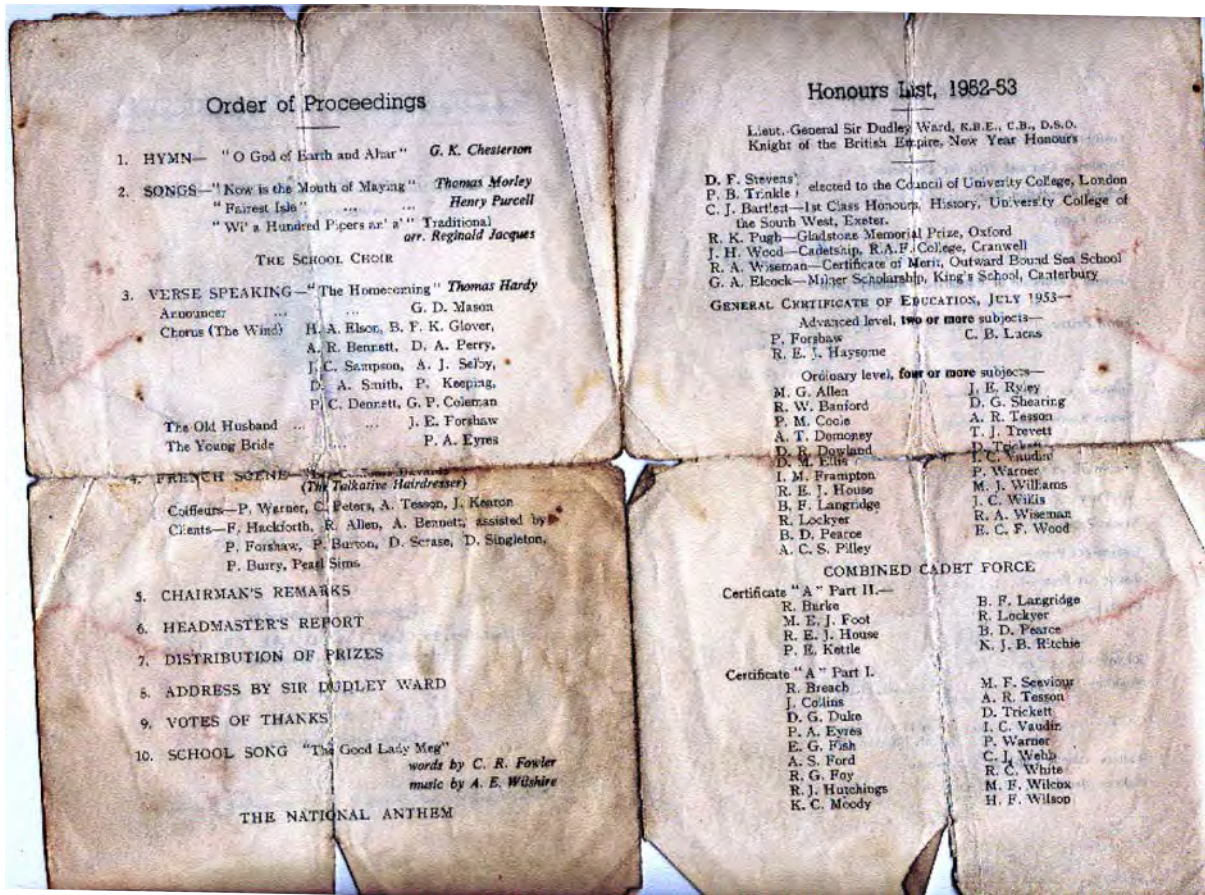 Order of Proceedings
1. HYMN— "O God of Earth and Altar" G. K. Chesterton
2. SONGS—"Now is the Month of Maying" Thomas Morley
"Fairest Isle" ... ... Henry Purcell
"Wi' a Hundred Pipers an' a'" Traditional
arr. Reginald Jacques
THE SCHOOL CHOIR
3. VERSE SPEAKING—"The Homecoming" Thomas Hardy
Announcer ... ... G. D. Mason
Chorus (The Wind) H. A. Elson, B. F. K. Glover,
A. R. Bennett, D. A. Perry,
J. C. Sampson, A. J. Selby,
D. A. Smith, P. Keeping,
P. C. Dennett, G. P. Coleman
The Old Husband ... ... J. E. Forshaw
The Young Bride ... P. A. Eyres
4. FRENCH SCENE—
(The Talkative Hairdresser)
Coiffeurs—P. Warner, C. Peters, A. Tesson, J. Kearon
Clients—F. Hackforth, R. Allen, A. Bennett, assisted by
P. Forshaw, P. Burton, D. Scrase, D. Singleton,
P. Burry, Pearl Sims
5. CHAIRMAN'S REMARKS
6. HEADMASTER'S REPORT
7. DISTRIBUTION OF PRIZES
8. ADDRESS BY SIR DUDLEY WARD
9. VOTES OF THANKS
10. SCHOOL SONG "The Good Lady Meg"
words by C. R. Fowler
music by A. E. Wilshire
THE NATIONAL ANTHEM
Honours List, 1952-53
Lieut.-General Sir Dudley Ward, K.B.E., C.B., D.S.O.
Knight of the British Empire, New Year Honours
D. F. Stevens
P. B. Trinkle elected to the Council of Univerity College, London
C. J. Bartlett—1st Class Honours, History, University College of
the South West, Exeter.
R. K. Pugh—Gladstone Memorial Prize, Oxford
J. H. Wood—Cadetship, R.A.F. College, Cranwell
R. A. Wiseman—Certificate of Merit, Outward Bound Sea School
G. A. Elcock—Milner Scholarship, King's School, Canterbury
GENERAL CERTIFICATE OF EDUCATION, JULY 1953—
Advanced level, two or more subjects—
P. Forshaw C. B. Lucas
R. E. J. Haysome
Ordinary level, four or more subjects—
M. G. Allen J. E. Ryley
R. W. Banford D. G. Shearing
P. M. Coole A. R. Tesson
A. T. Domoney T. J. Trevett
D. R. Dowland D. Trickett
D. M. Ellis I. C. Vaudin
I. M. Frampton P. Warner
R. E. J. House M. J. Williams
B. F. Langridge J. C. Willis
R. Lockyer R. A. Wiseman
B. D. Pearce E. C. F. Wood
A. C. S. Pilley
COMBINED CADET FORCE
Certificate "A" Part II.—
R. Burke B. F. Langridge
M. E. J. Foot R. Lockyer
R. E. J. House B. D. Pearce
P. E. Kettle N. J. B. Ritchie
Certificate "A" Part I.
R. Breach M. F. Seeviour
J. Collins A. R. Tesson
D. G. Duke D. Trickett
P. A. Eyres I. C. Vaudin
E. G. Fish P. Warner
A. S. Ford C. J. Webb
R. G. Foy R. C. White
R. J. Hutchings M. F. Wilcox
K. C. Moody H. F. Wilson